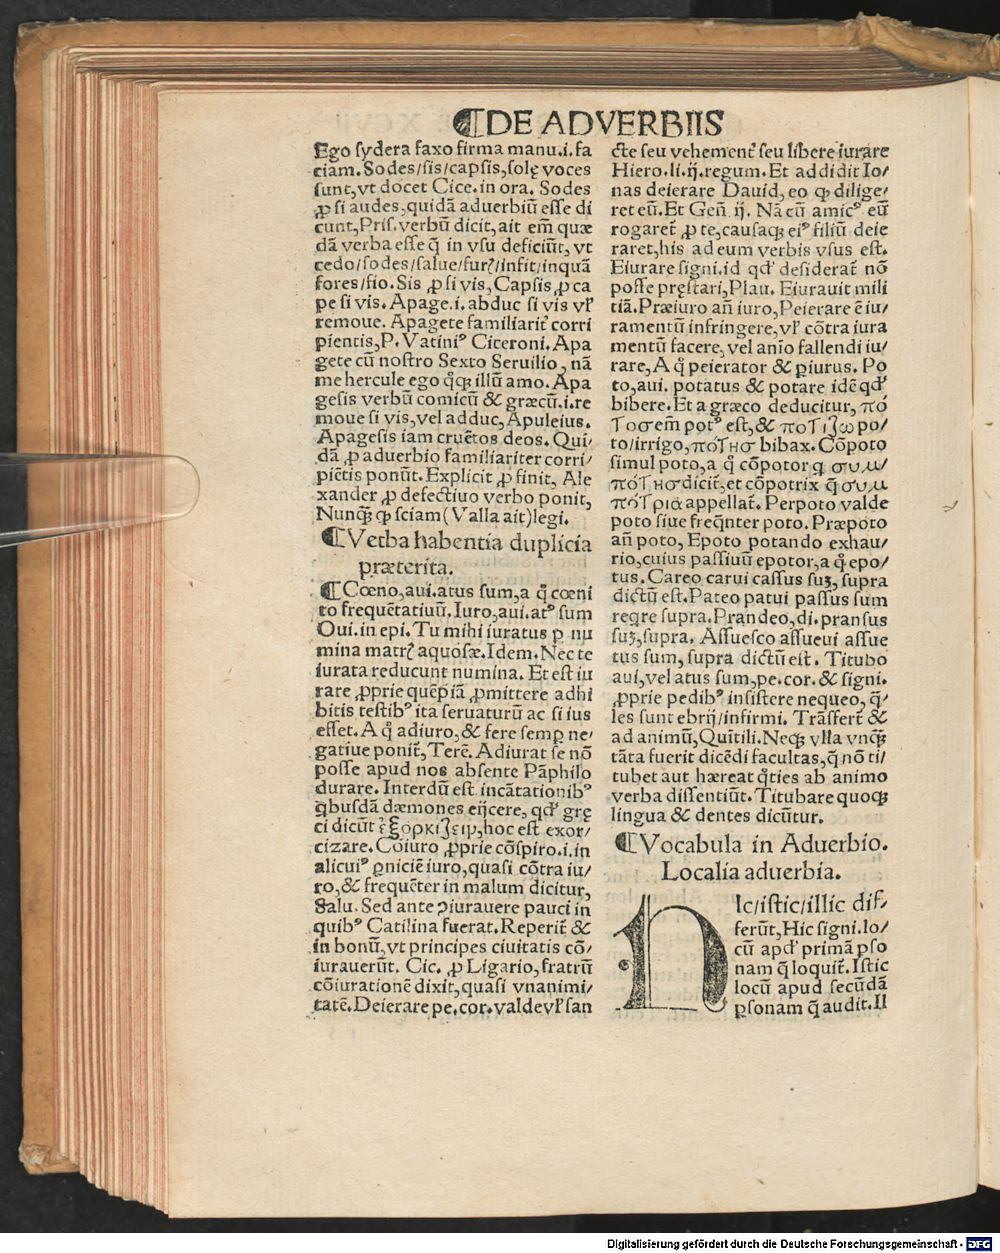 ¶DE ADVERBIIS
Ego sydera faxo firma manu.i.fa
ciam. Sodes/sis/capsis,solę voces
sunt,vt docet Cice.in ora. Sodes
ꝓ si audes,quidã aduerbiũ esse di
cunt,Pris.verbũ dicit,ait em̃ quæ
dã verba esse q̃ in vsu deficiũt, vt
cedo/sodes/salue/furꝭ/infit/inquã
fores/fio. Sis ꝓ si vis, Capsis, ꝓ ca
pe si vis. Apage.i. abduc si vis vł
remoue. Apagete familiarit᷑ corri
pientis, P. Vatiniꝰ Ciceroni. Apa
gete cũ nostro Sexto Seruilio, nã
me hercule ego qͦqꝫ illũ amo. Apa
gesis verbũ comicũ & græcũ.i.re
moue si vis, vel adduc, Apuleius.
Apagesis iam cruẽtos deos. Qui/
dã ꝓ aduerbio familiariter corri/
piẽtis ponũt. Explicit ꝓ finit, Ale
xander ꝓ defectiuo verbo ponit,
Nunqꝫ̃ ꝙ sciam (Valla ait) legi.
¶Verba habentia duplicia
præterita.
¶Cœno,aui.atus sum,a qͦ cœni
to frequẽtatiuũ. Iuro,aui.atꝰ sum
Oui.in epi. Tu mihi iuratus ꝑ nu
mina matrꝭ aquosæ. Idem. Nec te
iurata reducunt numina. Et est iu
rare ꝓprie quẽpiã ꝓmittere adhi
bitis testibꝰ ita seruaturũ ac si ius
esset. A qͦ adiuro, & fere semꝑ ne/
gatiue ponit᷑, Terẽ. Adiurat se nõ
posse apud nos absente Pãphilo
durare. Interdũ est incãtationibꝰ
qͥbusdã dæmones eijcere, qđ gre
ci dicũt ἐξορκίζειν,hoc est exor/
cizare. Coiuro ꝓprie cõspiro.i.in
alicuiꝰ ꝑniciẽ iuro,quasi cõtra iu/
ro,& frequẽter in malum dicitur,
Salu. Sed ante ꝯiurauere pauci in
quibꝰ Catilina fuerat. Reperit᷑ &
in bonũ, vt principes ciuitatis cõ/
iurauerũt. Cic. ꝓ Ligario, fratrũ
cõiurationẽ dixit, quasi vnanimi/
tatẽ. Deierare pe.cor.valde vł san
cte seu vehement᷑ seu libere iurare
Hiero.li.ij.regum. Et addidit Io/
nas deierare Dauid, eo ꝙ dilige/
ret eũ. Et Geñ. ij. Nã cũ amicꝰ eũ
rogaret᷑ ꝓ te, causaqꝫ eiꝰ filiũ deie
raret,his ad eum verbis vsus est.
Eiurare signi.id qđ desiderat᷑ nõ
posse pręstari, Plau. Eiurauit mili
tiã. Præiuro añ iuro, Peierare ẽ iu/
ramentũ infringere, vł cõtra iura
mentũ facere, vel anĩo fallendi iu/
rare, A qͦ peierator & ꝑiurus. Po
to,aui. potatus & potare idẽ qđ
bibere. Et a græco deducitur, πό
τος em̃ potꝰ est, & ποτίζω po/
to/irrigo, πότης bibax. Cõpoto
simul poto,a qͦ cõpotor q συμ/
πότης dicit᷑,et cõpotrix q̃ συμ
πότρια appellat᷑. Perpoto valde
poto siue freq̃nter poto. Præpoto
añ poto, Epoto potando exhau/
rio,cuius passiuũ epotor, a qͦ epo/
tus. Careo carui cassus suꝫ, supra
dictũ est. Pateo patui passus sum
reqre supra. Prandeo,di.pransus
suꝫ,supra. Assuesco assueui assue
tus sum, supra dictũ est. Titubo
aui, vel atus sum, pe.cor. & signi.
ꝓprie pedibꝰ insistere nequeo, q̃/
les sunt ebrij/infirmi. Trãsfert᷑ &
ad animũ, Quĩtili. Neqꝫ vlla vnqꝫ̃
tãta fuerit dicẽdi facultas, q̃ nõ ti/
tubet aut hæreat qͦties ab animo
verba dissentiũt. Titubare quoqꝫ
lingua & dentes dicũtur.
¶Vocabula in Aduerbio.
Localia aduerbia.
HIc/istic/illic dif/
ferũt, Hic signi. lo/
cũ apđ primã ꝑso
nam q̃ loquit᷑. Istic
locũ apud secũdã
ꝑsonam q̃ audit. Il
Digitalisierung gefördert durch die Deutsche Forschungsgemeinschaft - DFG